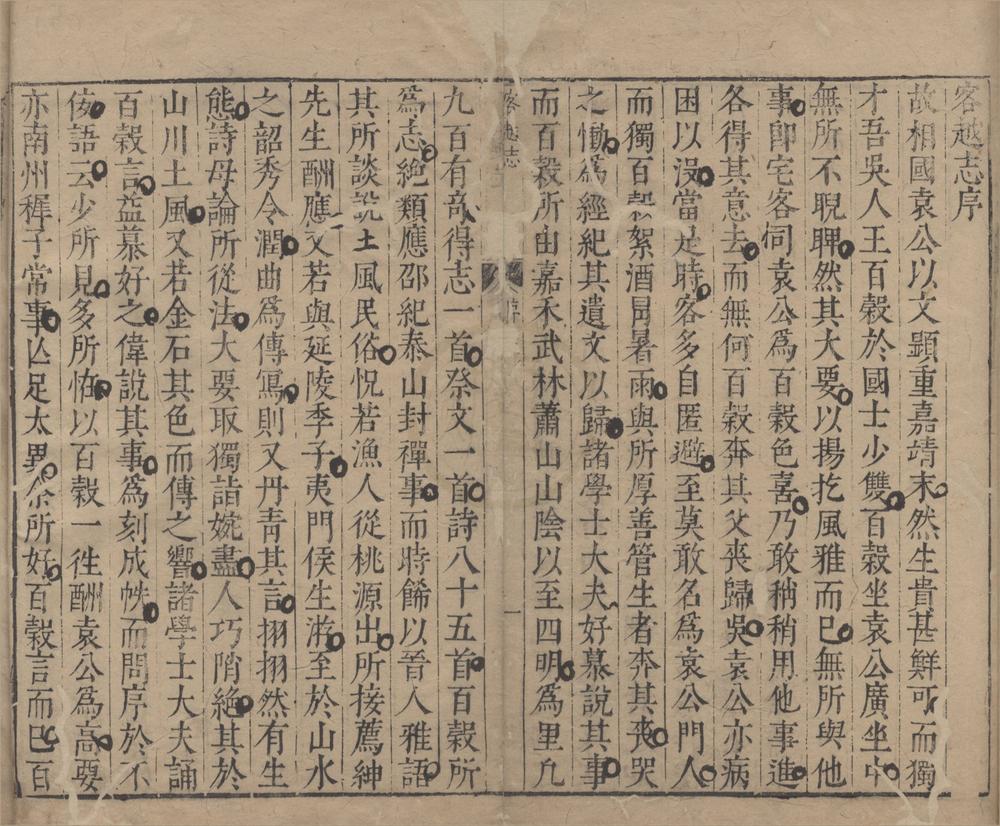 客越志序
故相國袁公以文顯重嘉靖末然生貴甚鮮可而獨
才吾吳人王百穀於國士少雙百穀坐袁公廣坐中
無所不睨睥然其大要以揚扢風雅而已無所與他
事卽宅客伺袁公爲百穀色喜乃敢稍稍用他事進
各得其意去而無何百穀奔其父喪歸吳袁公亦病
困以沒當是時客多自匿避至莫敢名爲袁公門人
而獨百穀絮酒冒暑雨與所厚善管生者奔其喪哭
之慟爲經紀其遺文以歸諸學士大夫好慕說其事
而百穀所由嘉禾武林蕭山山陰以至四明爲里凡
客越志 序 一
九百有奇得志一首祭文一首詩八十五首百穀所
爲志絶類應邵紀泰山封禪事而時餙以晉人雅語
其所談說土風民俗怳若漁人從桃源出所接薦紳
先生酬應又若與延陵季子夷門侯生游至於山水
之韶秀令潤曲爲傳寫則又丹靑其言栩栩然有生
態詩毋論所從法大要取獨詣婉盡人巧陗絶其於
山川土風又若金石其色而傳之響諸學士大夫誦
百穀言益慕好之偉說其事爲刻成帙而問序於不
佞語云少所見多所恠以百穀一徃酬袁公爲高要
亦南州穉子常事亾足太異余所好百穀言而已百